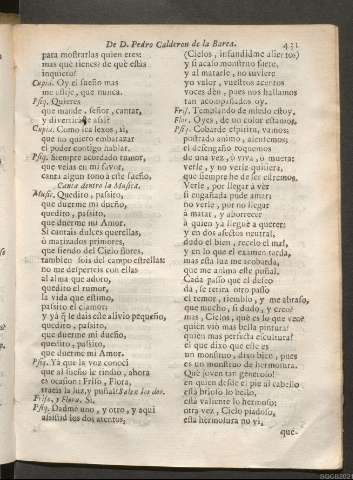 De D. Pedro Calderon de la Barca. 431
para mostrarlas quien eres:
mas què tienes? de què estàs
inquieto?
Cupid. Oy el sueño mas
me aflige, que nunca.
Psiq. Quieres
que mande, señor, cantar,
y divertirte assi?
Cupid. Como sea lexos, si,
que no quiero embarazar
el poder contigo hablar.
Psiq. Siempre acordado rumor,
que velas en mi favor,
canta algun tono à este sueño.
Canta dentro la Musica.
Music. Quedito, passito,
que duerme mi dueño,
quedito, passito,
que duerme mi Amor.
Si cantais dulces querellas,
ò matizados primores,
que siendo del Cielo flores,
tambien sois del campo estrellas:
no me desperteis con ellas
al alma que adoro,
quedito el rumor,
la vida que estimo,
passito el clamor:
y yà que le dais este alivio pequeño,
quedito, passito,
que duerme mi dueño,
quedito, passito,
que duerme mi Amor.
Psiq. Yà que la voz conocì
que al sueño le rindiò, ahora
es ocasion: Friso, Flora,
traed la luz, y puñal: Salen los dos.
Friso, y Flora. Si.
Psiq. Dadme uno, y otro, y aqui
assistid los dos atentos;
(Cielos, infundidme alientos)
y si acaso monstruo fuere,
y al matarle, no tuviere
yo valor, vuestros acentos
voces dèn, pues nos hallamos
tan acompañados oy.
Fris. Temblando de miedo estoy.
Flor. Oyes, de no color estamos.
Psiq. Cobarde espiritu, vamos;
postrado animo, alentemos;
el desengaño toquemos
de una vez, ò viva, ò muera:
verle, y no verle quisiera,
que siempre he de ser estremos.
Verle, por llegar à vèr
si engañada pude amar;
no verle, por no llegar
à matar, y aborrecer
à quien yà lleguè à querer:
y en dos afectos neutral,
dudo el bien, recelo el mal,
y en lo que el examen tarda,
mas esta luz me acobarda,
que me anima este puñal.
Cada passo que el deseo
dà, se retira otro passo
el temor; tiemblo, y me abraso,
que mucho, si dudo, y creo?
mas, Cielos, què es lo que veo?
quien viò mas bella pintura?
quien mas perfecta escultura?
el que dixo que este es
un monstruo, dixo bien, pues
es un monstruo de hermosura.
Què joven tan generoso!
en quien desde el pie al cabello
està brioso lo bello,
està valiente lo hermoso;
otra vez, Cielo piadoso,
esta hermosura no vì,
que-